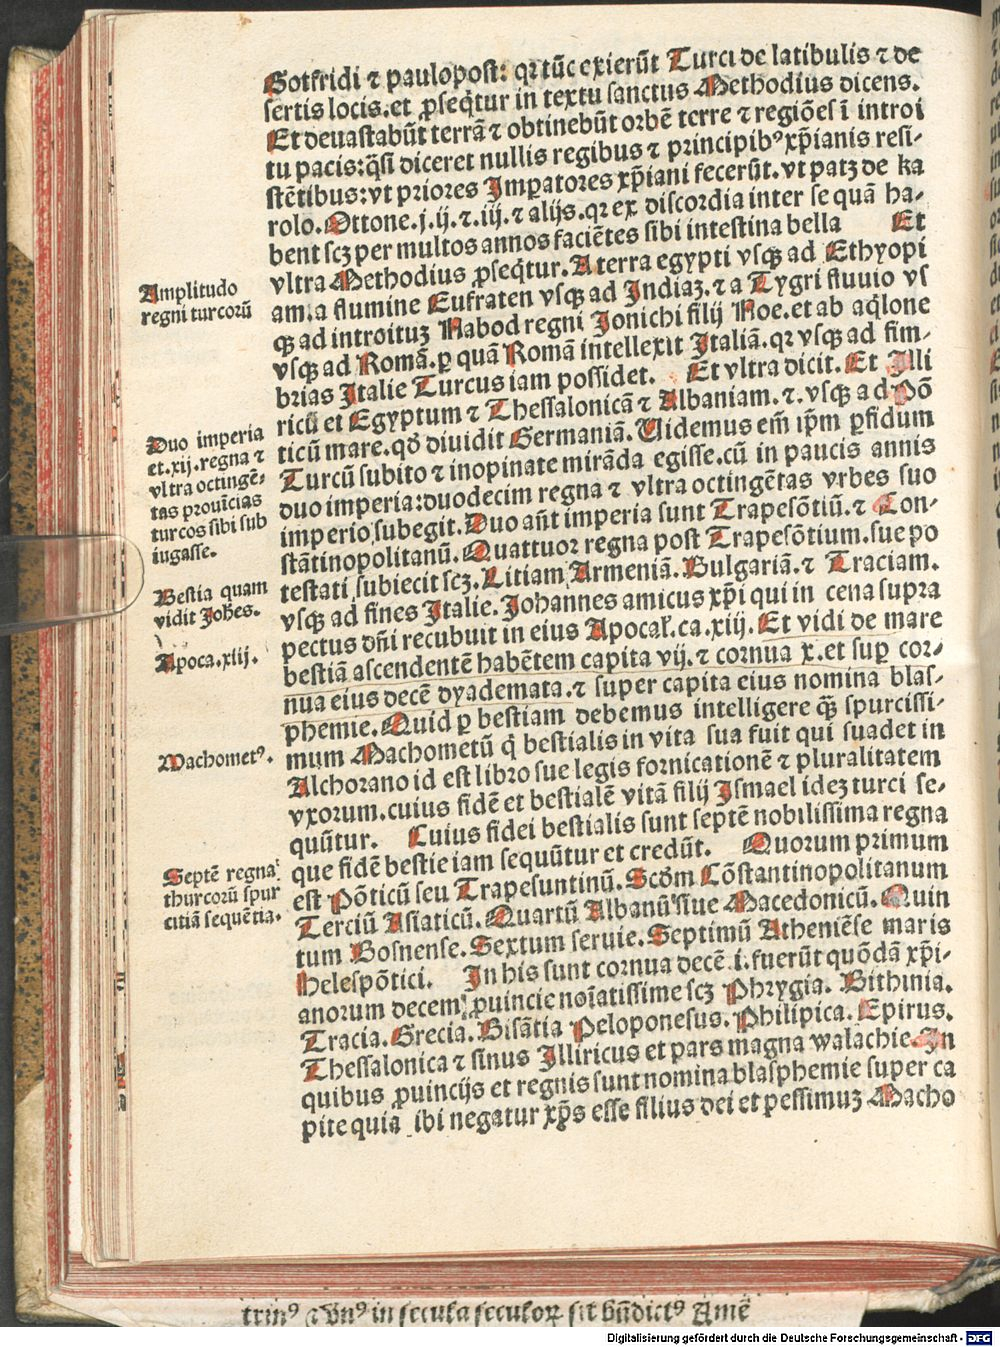 Gotfridi ⁊ paulopost: qꝛ tūc exierūt Turci de latibulis ⁊ de
sertis locis.et ꝓseqt̄ur in textu sanctus Methodius dicens.
Et deuastabūt terrā ⁊ obtinebūt orbē terre ⁊ regiōes ī introi
tu pacis:q̄si diceret nullis regibus ⁊ principibꝰ xp̄ianis resi-
stētibus:vt priores Imꝑatores xp̄iani fecerūt.vt patꝫ de ka
rolo.Ottone.j.ij.⁊.iij.⁊ alijs.qꝛ ex discordia inter se quā ha-
bent scꝫ per multos annos faciētes sibi intestina bella Et
vltra Methodius ꝓseqt̄ur.A terra egypti vsqꝫ ad Ethyopi
am.a flumine Eufraten vsqꝫ ad Indiaꝫ.⁊ a Tygri fluuio vs
qꝫ ad introituꝫ Nabod regni Jonichi filij Noe.et ab aq̄lone
vsqꝫ ad Romā.ꝑ quā Romā intellexit Italiā.qꝛ vsqꝫ ad fim-
brias Italie Turcus iam possidet. Et vltra dicit.Et Illi
ricū et Egyptum ⁊ Thessalonicā ⁊ Albaniam.⁊.vsqꝫ ad Pō
ticū mare.qd̄ diuidit Germaniā.Uidemus em̄ ip̄m ꝑfidum
Turcū subito ⁊ inopinate mirāda egisse.cū in paucis annis
duo imperia:duodecim regna ⁊ vltra octingētas vrbes suo
imperio subegit.Duo aūt imperia sunt Trapesōtiū.⁊ Con-
stātinopolitanū.Quattuor regna post Trapesōtium.sue po
testati subiecit scꝫ.Litiam Armeniā.Bulgariā.⁊ Traciam.
vsqꝫ ad fines Italie.Johannes amicus xp̄i qui in cena supra
pectus dn̄i recubuit in eius Apocaꝉ.ca.xiij.Et vidi de mare
bestiā ascendentē habētem capita vij.⁊ cornua x.et suꝑ cor-
nua eius decē dyademata.⁊ super capita eius nomina blas-
phemie.Quid ꝑ bestiam debemus intelligere qꝫ̄ spurcissi-
mum Machometū q̇ bestialis in vita sua fuit qui suadet in
Alchorano id est libro sue legis fornicationē ⁊ pluralitatem
vxorum.cuius fidē et bestialē vitā filij Ismael ideꝫ turci se-
quūtur. Cuius fidei bestialis sunt septē nobilissima regna
que fidē bestie iam sequūtur et credūt. Quorum primum
est Pōticū seu Trapesuntinū.Scd̄m Cōstantinopolitanum
Terciū Asiaticū.Quartū Albanū siue Macedonicū.Quin
tum Bosnense.Sextum seruie.Septimū Atheniēse maris
Helespōtici. In his sunt cornua decē.i.fuerūt quōdā xp̄i-
anorum decem ꝓuincie noīatissime scꝫ Phrygia. Bithinia.
Tracia.Grecia.Bisātia Peloponesus.Philipica.Epirus.
Thessalonica ⁊ sinus Illiricus et pars magna walachie.In
quibus ꝓuincijs et regnis sunt nomina blasphemie super ca
pite quia ibi negatur xp̄s esse filius dei et pessimuꝫ Macho
Amplitudo
regni turcorū
Duo imperia
et.xij.regna ⁊
vltra octingē-
tas prouīcias
turcos sibi sub
iugasse.
Bestia quam
vidit Joh̄es.
Apoca.xiij.
Machometꝰ.
Septē regna
thurcorū spur
citiā sequētia.
trinꝰ ⁊ vnꝰ in secula seculoꝝ sit bn̄dictꝰ Amē
Digitalisierung gefördert durch die Deutsche Forschungsgemeinschaft - DFG